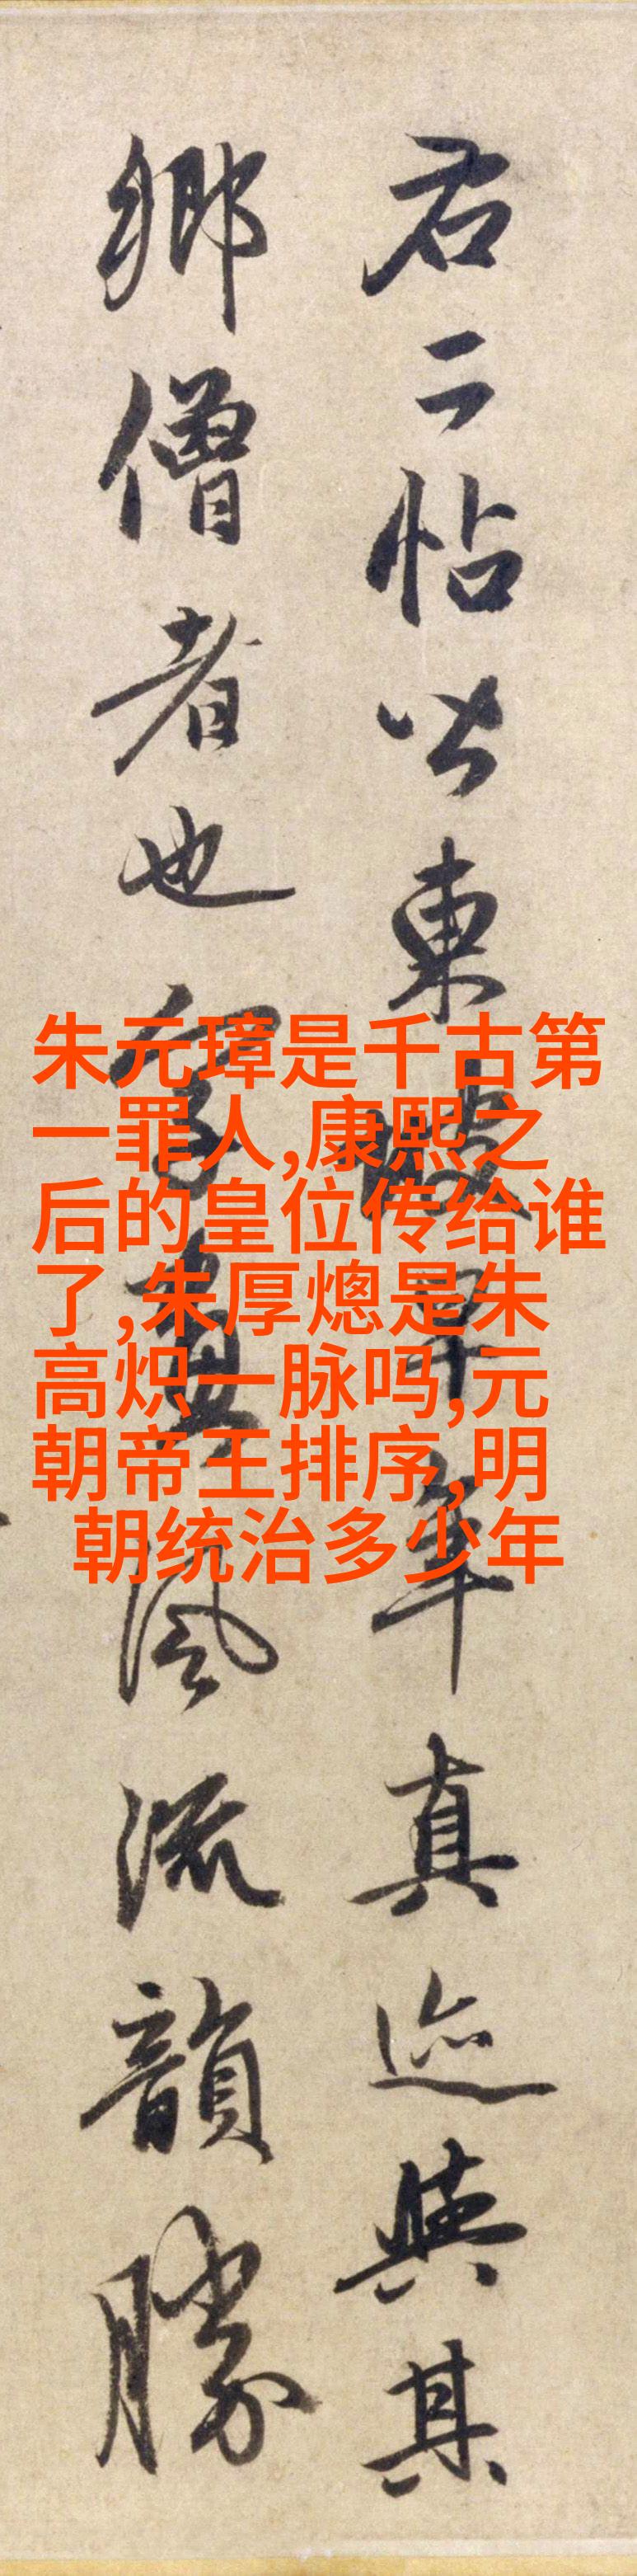 右二帖皆東坡早年真迹與其
鄉僧者也字畫風流韻勝
朱元璋是千古第
一罪人,康熙之
后的皇位传给谁
了,朱厚熜是朱
高炽一脉吗,元
朝帝王排序,明
朝统治多少年